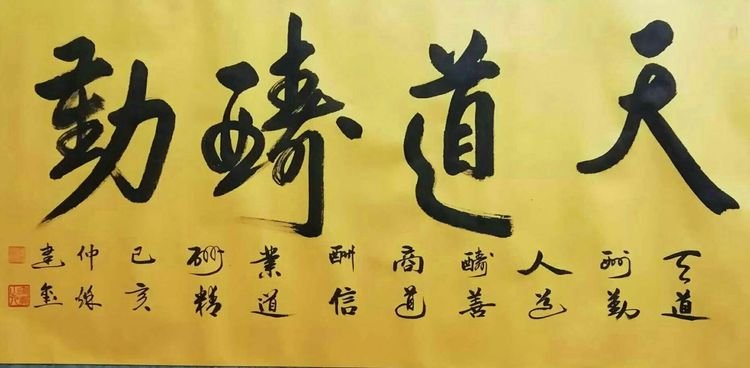 天道醻勤
天道
酬勤
人道
醻善
商道
酬信
業道
酬精
己亥
仲秋
建